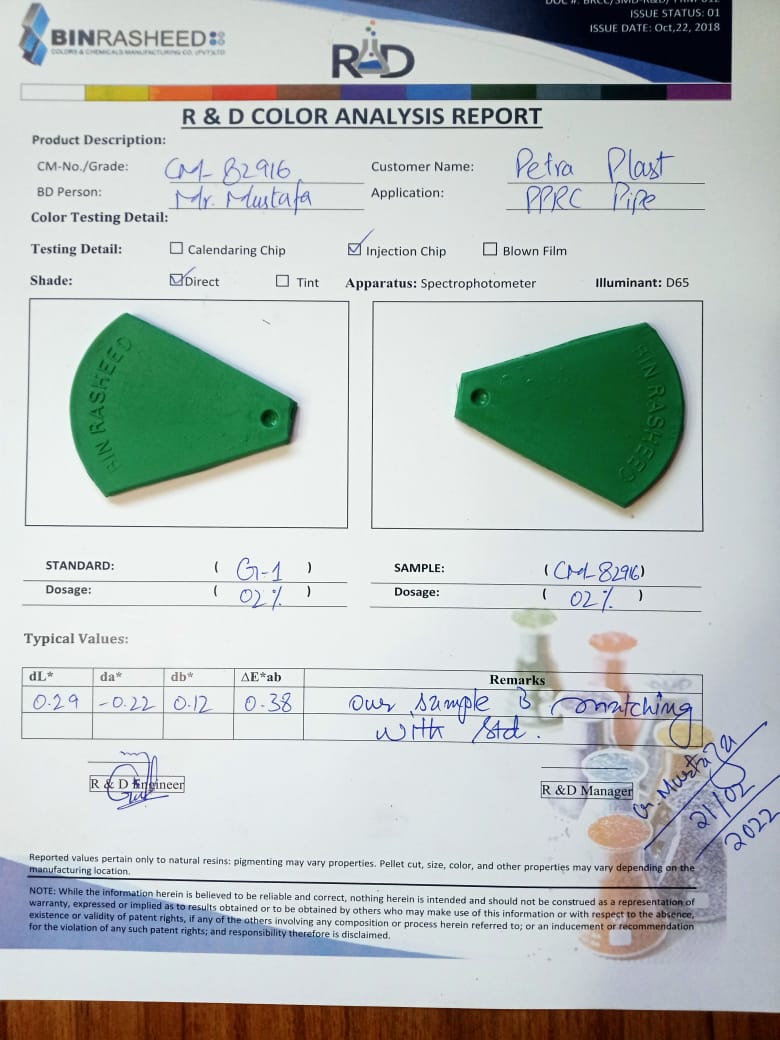 ISSUE STATUS: 01
ISSUE DATE: Oct,22, 2018
BINRASHEED
COLORS & CHEMICALS MANUFACTURING CO. (PVT)LTD
R&D
R & D COLOR ANALYSIS REPORT
Product Description:
CM-No./Grade: CM-82916 Customer Name: Petra Plast
BD Person: Mr. Mustafa Application: PPRC Pipe
Color Testing Detail:
Testing Detail: Calendaring Chip Injection Chip Blown Film
Shade: Direct Tint Apparatus: Spectrophotometer Illuminant: D65
BIN RASHEED BIN RASHEED
STANDARD: ( G-1 ) SAMPLE: (CM-82916)
Dosage: ( 02% ) Dosage: ( 02% )
Typical Values:
dL* da* db* ΔE*ab Remarks
0.29 -0.22 0.12 0.38 Our sample is matching
with std.
R & D Engineer R &D Manager
Mustafa
21/02
2022
Reported values pertain only to natural resins: pigmenting may vary properties. Pellet cut, size, color, and other properties may vary depending on the
manufacturing location.
NOTE: While the information herein is believed to be reliable and correct, nothing herein is intended and should not be construed as a representation of
warranty, expressed or implied as to results obtained or to be obtained by others who may make use of this information or with respect to the absence,
existence or validity of patent rights, if any of the others involving any composition or process herein referred to; or an inducement or recommendation
for the violation of any such patent rights; and responsibility therefore is disclaimed.